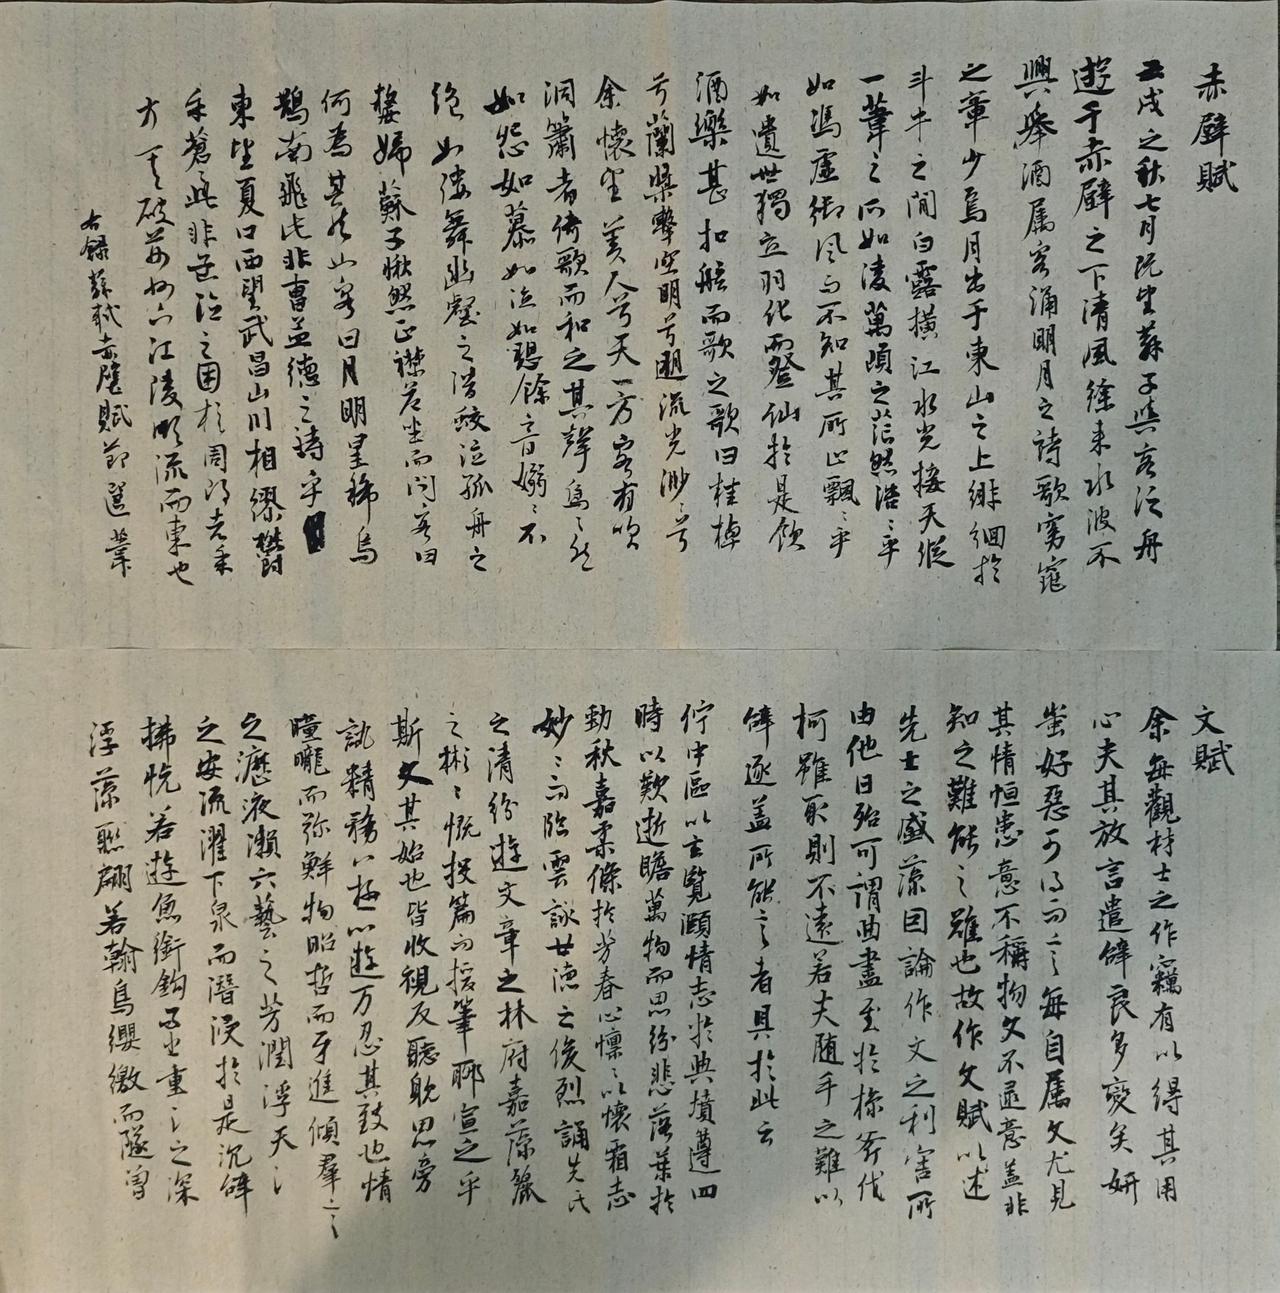 赤壁賦
壬戌之秋七月既望蘇子與客泛舟
遊于赤壁之下清風徐来水波不
興舉酒属客誦明月之詩歌窈窕
之章少焉月出于東山之上徘徊於
斗牛之間白露横江水光接天縱
一葦之所如凌萬頃之茫然浩〻乎
如馮虚御風而不知其所止飄〻乎
如遺世獨立羽化而登仙於是飲
酒樂甚扣舷而歌之歌曰桂棹
兮蘭槳擊空明兮遡流光渺〻兮
余懷望美人兮天一方客有吹
洞簫者倚歌而和之其聲烏〻然
如怨如慕如泣如愬餘音嫋〻不
絶如縷舞幽壑之潛蛟泣孤舟之
嫠婦蘇子愀然正襟危坐而问客曰
何為其然山客曰月明星稀烏
鵲南飛此非曹孟德之詩乎
東望夏口西望武昌山川相繆鬱
乎蒼此非孟德之困於周郎者乎
方其破荆州下江陵順流而東也
右録蘇軾赤壁賦節選 葦
文賦
余每觀材士之作竊有以得其用
心夫其放言遣辭良多變矣妍
蚩好惡可得而言每自属文尤見
其情恒患意不稱物文不逮意盖非
知之難能之難也故作文賦以述
先士之盛藻因論作文之利害所
由他日殆可謂曲盡至於操斧伐
柯雖取則不遠若夫随手之難以
辭逐盖所能言者具於此云
佇中區以玄覽頤情志於典墳遵四
時以歎逝瞻萬物而思紛悲落葉於
勁秋嘉柔條於芳春心懔〻以懷霜志
妙〻而臨雲詠世德之俊烈誦先民
之清紛遊文章之林府嘉藻麗
之彬〻慨投篇而援筆聊宣之乎
斯文其始也皆收視反聽耽思旁
訊精騖八極心遊万忍其致也情
曈曨而弥鮮物昭晢而互進傾羣言
之瀝液漱六藝之芳潤浮天〻
之安流濯下泉而潛浸於是沉辭
拂恱若遊魚銜鈎而出重〻之深
浮藻聯翩若翰鳥纓繳而墜曽